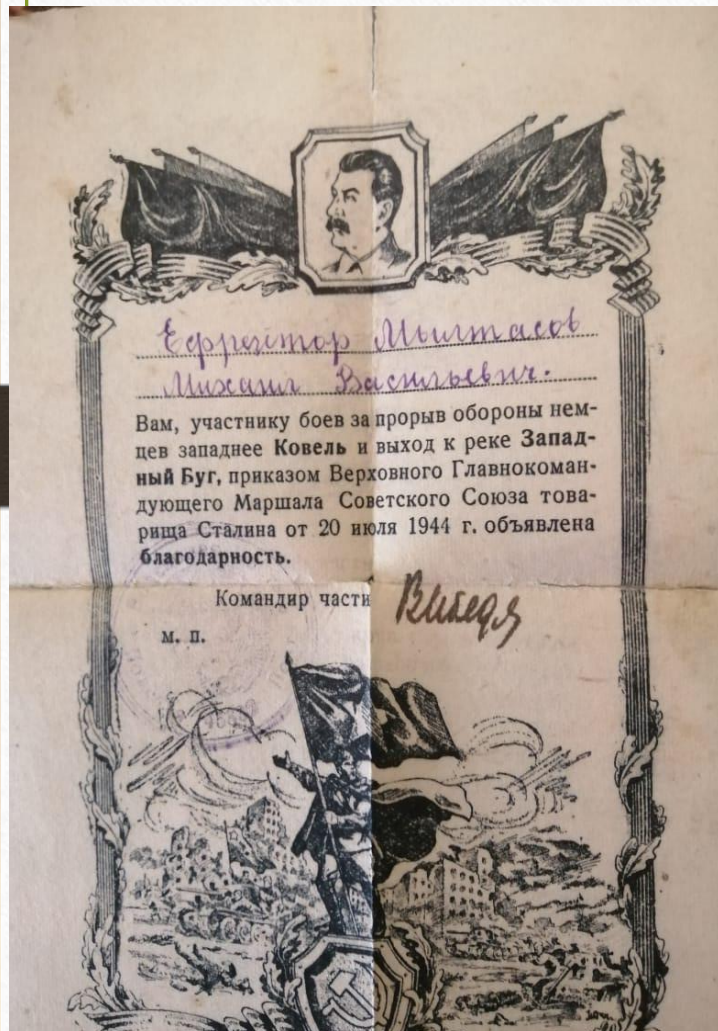 Ефрейтор Мылтасов
Михаил Васильевич.
Вам, участнику боев за прорыв обороны нем-
цев западнее Ковель и выход к реке Запад-
ный Буг, приказом Верховного Главнокоман-
дующего Маршала Советского Союза това-
рища Сталина от 20 июля 1944 г. объявлена
благодарность.
Командир части
м. п.